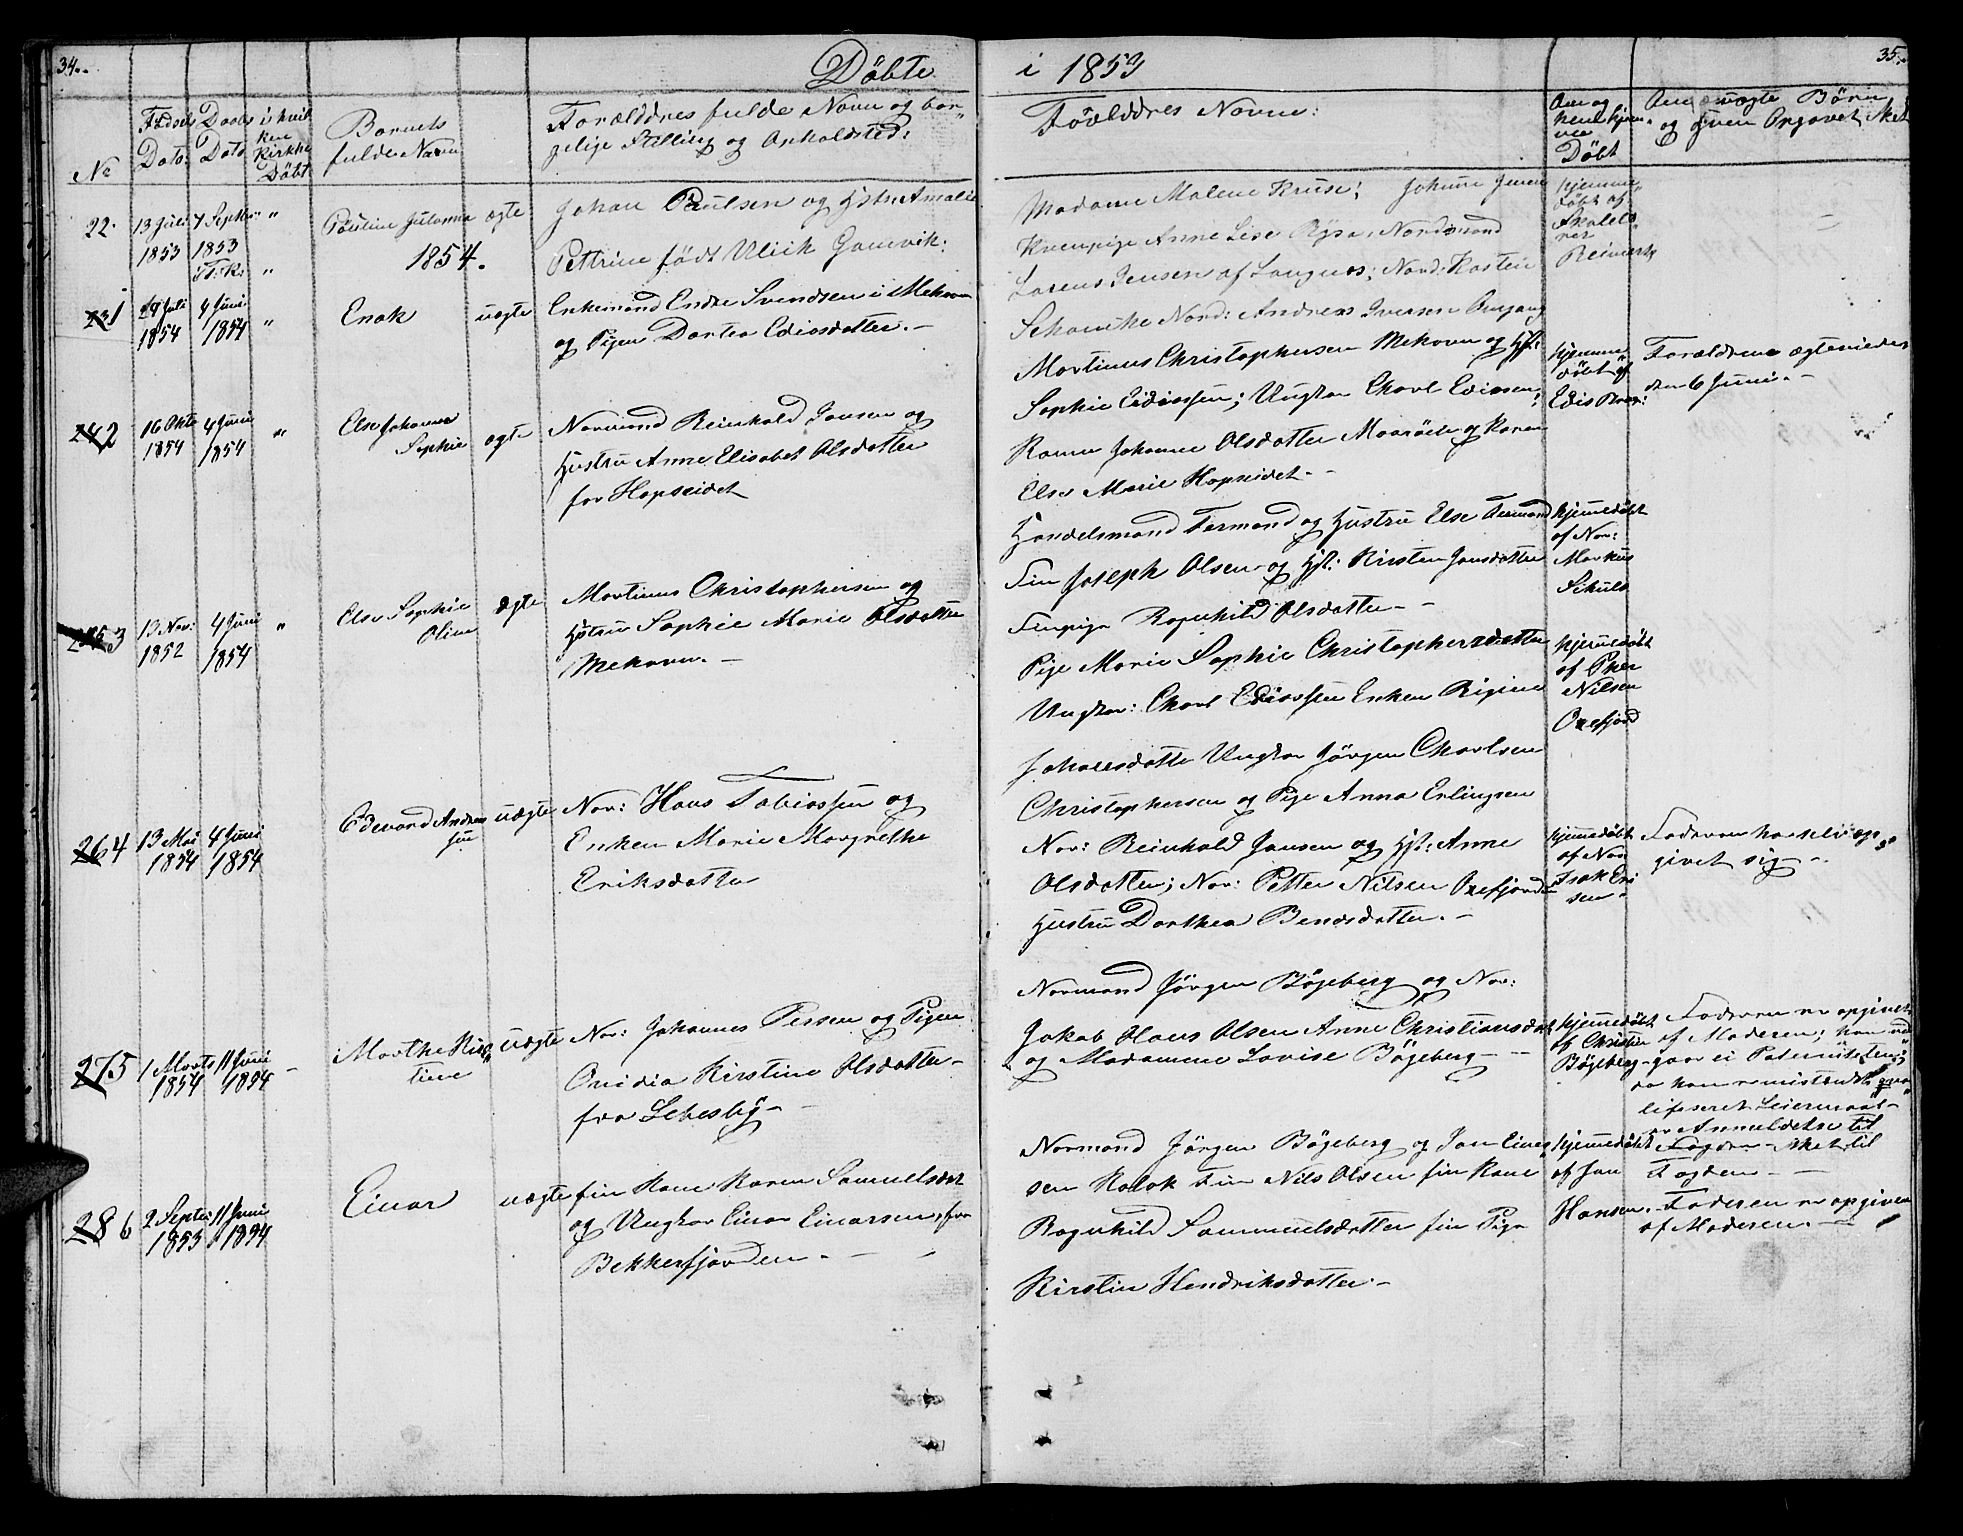 34.
Döbte
i 1853
35.
No
Födsels Dato:
Daabs Dato
i hvilken Kirkke Döbt
Barnets fulde Navn
Forælddres fulde Navn og borgelige Stilling og Opholdsted:
Föælddres Navne:
Om og hjemme Döbt
Om uægte Börn
22.
13 Juli 1853
7 Septbr: 1853
Pouline Julanna
ægte
Johan Paulsen og Hstr: Amalie
Pettrine födt Ulrik Gamvik:
Madame Malene Kruse; Johane Jensen
Anne Lise Nordmand
Lorens Jensen af Langnes; Nord: Karsten
Nord: Andreas Iversen Omgang
hjemme döbt af
1854.
1
29 Juli 1854
4 Juni 1854
"
Enok
uægte
Enkemand Endre Svendsen i Mehavn
og Pigen Dortea Ediasdatter.-
Martinus Christophersen Mehavn og Hst:
Sophie Ediassen; Ungkar Charl Ediasen;
hjemmedöbt af
Forældrene ægteviede
den 6 Juni.-
24 2
16 Okto 1854
4 Juni 1854
"
Else Johanna
Sophie
ægte
Normand Reinhold Jansen og
Hustru Anne Elisabet Olsdatter
fra Hopseidet
Konen Johanne Olsdatter og Konen
Else Marie Hopseidet.-
Handelsmand Fermand og Hustru Else Fermand
Fin Joseph Olsen og Hst: Kirsten Jansdatter
Finpige Ragnhild Olsdatter.-
hjemmedöbt
af Nor:
Markus
Schults
3
13 Nov: 1852
4 Juni 1854
"
Else Sophie
Oline
ægte
Martinus Christophersen og
Hstru Sophie Marie Olsdatter
Mehavn.-
Pige Marie Sophie Christophersdatter
Ungkar: Charl Ediassen Enken Regine
Johannesdatter Ungkar Jörgen Charlsen
Christophersen og Pige Anna Erlingsen
hjemmedöbt
af Peer
Nilsen
Oxefjord
26 4
13 Mai 1854
4 Juni 1854
Edevard Andreas
uægte
Nor: Hans Tobiassen og
Enken Marie Margrethe
Eriksdatter
Nor: Reinhold Jansen og Hst: Anne
Olsdatter; Nor: Petter Nilsen Oxefjord
Hustru Dorthea Bendsdatter.-
hjemmedöbt
af Nor
Isak Eri
sen.
Faderen har selv op
givet sig.-
27 5
1 Marts 1854
11 Juni 1854
Marthe Kirs
tine
uægte
Nor: Johannes Persen og Pigen
Ovidia Kirstine Olsdatter-
fra Lebesby-
Normand Jörgen Bögeberg og Nor:
Jakob Hans Olsen Anne Christiansdat
og Madamme Lovise Bögeberg-
hjemmedöbt
af Christian
Bögeberg
Faderen er opgivet
af Moderen; han ved
gaar ei Paterniteten;
da han er mistænkt
Leiermaal-
er Anmeldelse til
Fogden - sket til
Fogden -
28 6
2 Septbr 1853
11 Juni 1854
Einar
uægte
fin Kone Karen Samuelsdat
og Ungkar Einar Einarsen, fra
Bekkerfjorden.-
Normand Jörgen Bögeberg og Jon Einar
sen Kalak Fin Nils Olsen fin Kone
Ragnhild Sammuelsdatter fin Pige
Kirstin Hendriksdatter.-
hjemmedöbt
af Jan
Hansen.
Faderen er opgiven
af Moderen.-